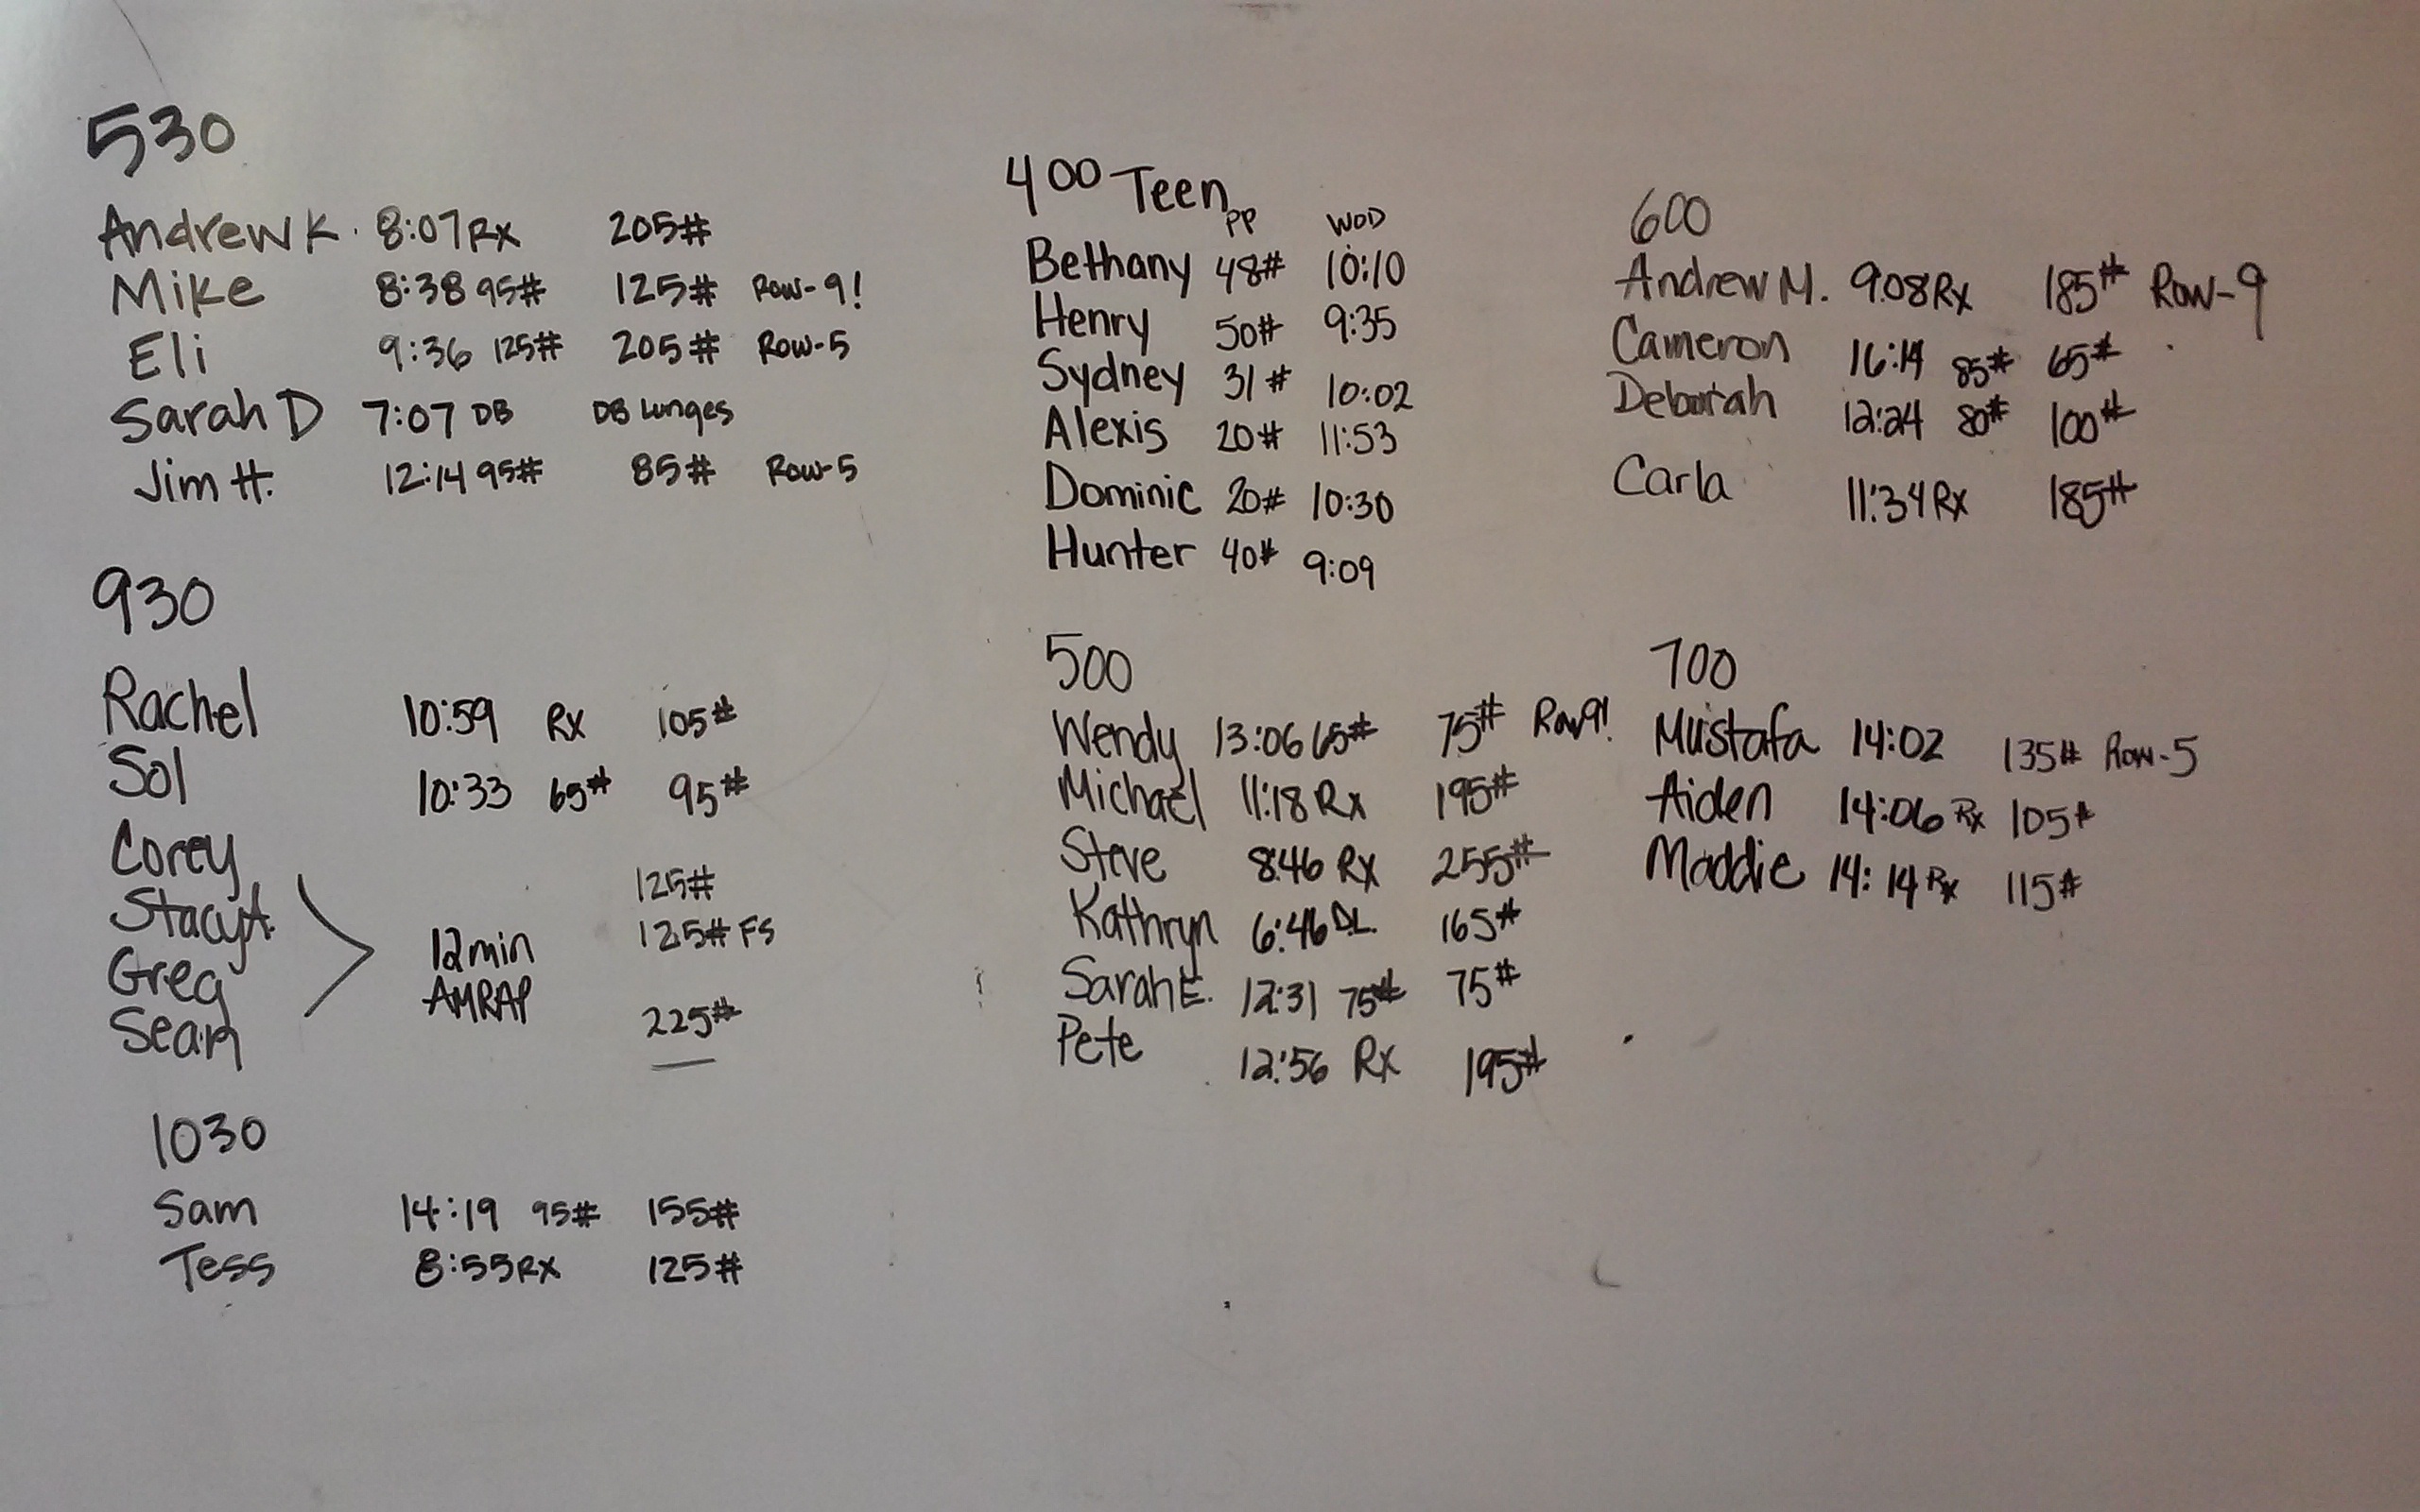 530
Andrew K. 8:07 Rx 205#
Mike 8:38 95# 125# Row-9!
Eli 9:36 125# 205# Row-5
Sarah D 7:07 DB DB Lunges
Jim H. 12:14 95# 85# Row-5
930
Rachel 10:59 Rx 105#
Sol 10:33 65# 95#
Corey 125#
Stacy A. 125# FS
12min
Greg
AMRAP
Sean 225#
1030
Sam 14:19 95# 155#
Tess 8:55 RX 125#
400 Teen
PP WOD
Bethany 48# 10:10
Henry 50# 9:35
Sydney 31# 10:02
Alexis 20# 11:53
Dominic 20# 10:30
Hunter 40# 9:09
500
Wendy 13:06 65# 75# Row 9!
Michael 11:18 Rx 195#
Steve 8:46 Rx 255#
Kathryn 6:46 D.L. 165#
Sarah E. 12:31 75# 75#
Pete 12:56 Rx 195#
600
Andrew M. 9:08 Rx 185# Row-9
Cameron 16:14 85# 65#
Deborah 12:24 80# 100#
Carla 11:34 Rx 185#
700
Mustafa 14:02 135# Row-5
Aiden 14:06 Rx 105#
Maddie 14:14 Rx 115#